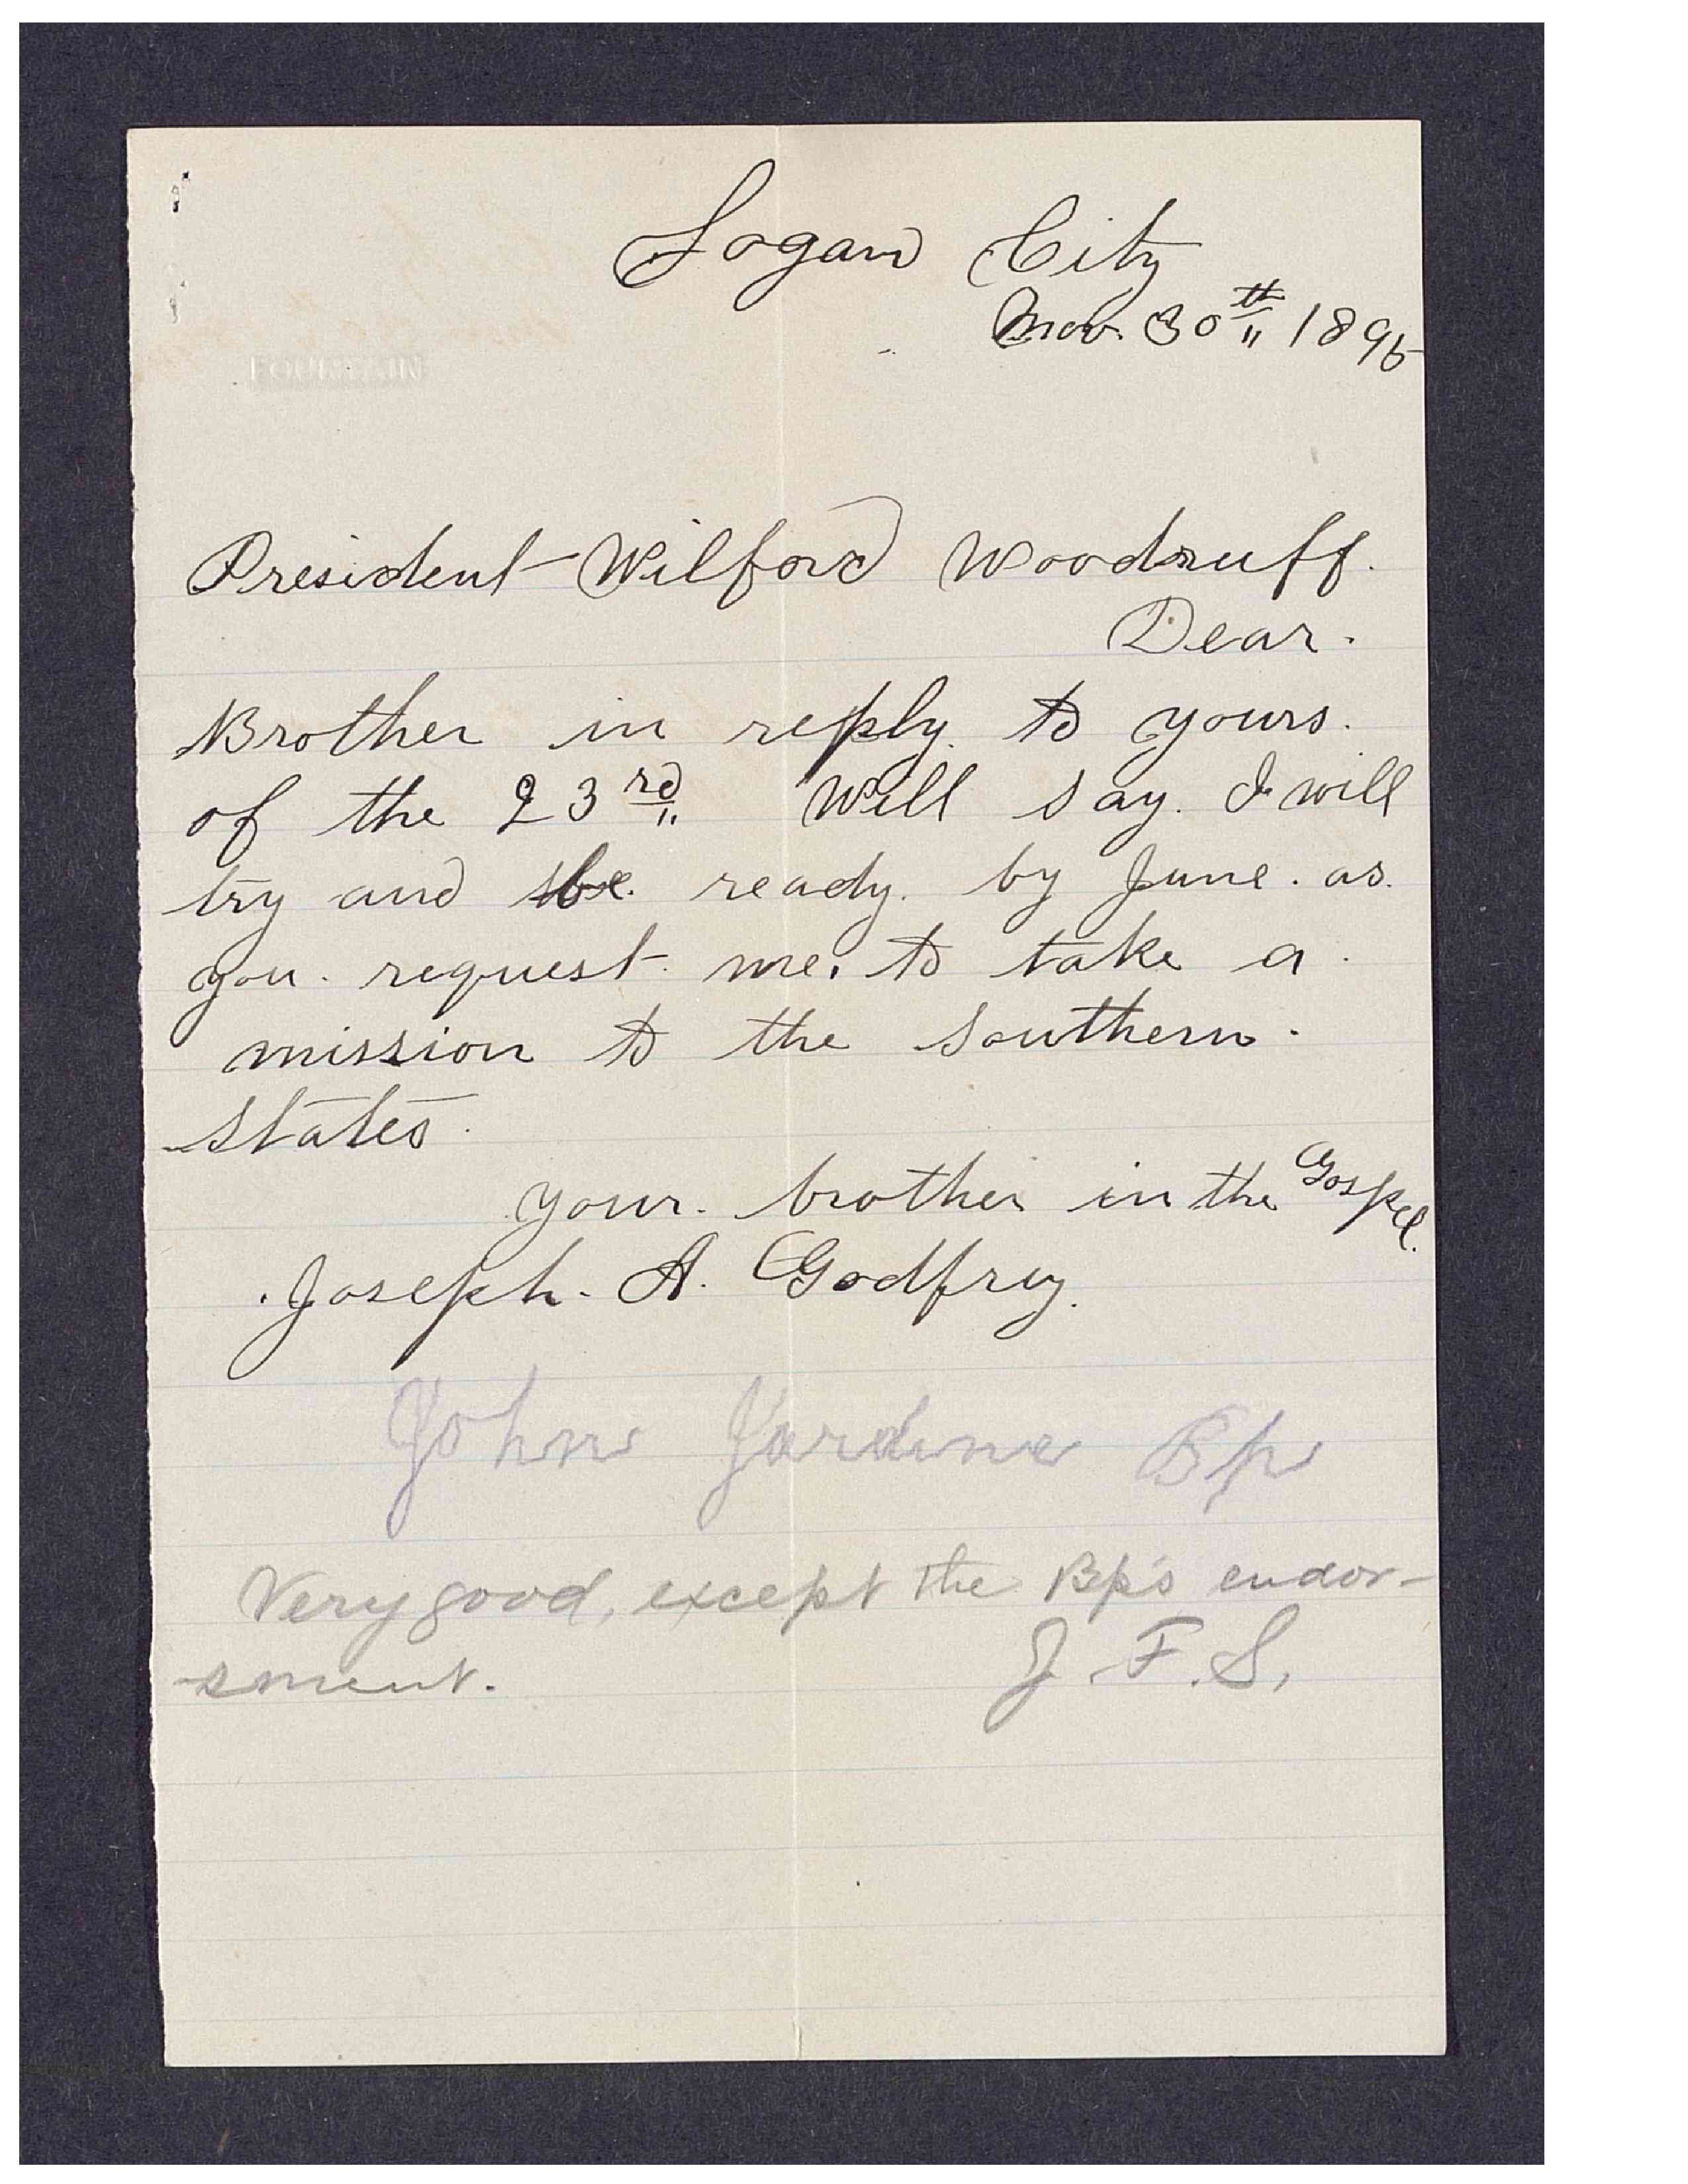 Logan City
Nov. 30th 1895
FOUNTAIN
President Wilford Woodruff.
Dear.
Brother in reply. to yours.
of the 23rd Will say. I will
try and be. ready. by June. as.
you. request. me. to take a.
mission to the Southern.
States.
your. brother in the Gospel.
Joseph. A. Godfrey.
John Jardine Bp
Very good, except the Bp's endor-
sment.
J. F. S.